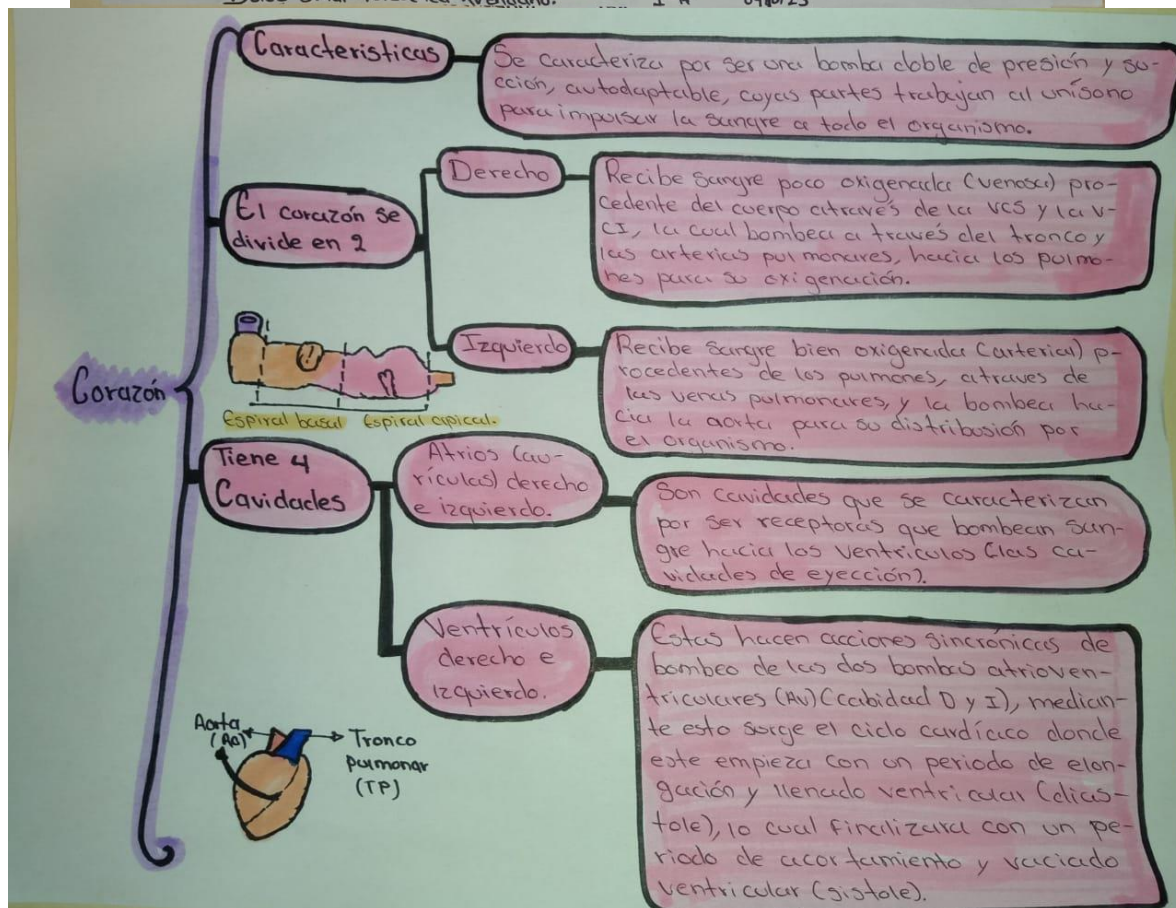 I A
Características
Se caracteriza por ser una bomba doble de presión y su-
cción, autodaptable, cuyas partes trabajan al unísono
para impulsar la sangre a todo el organismo.
El corazón se
divide en 2
Derecho
Recibe sangre poco oxigenada (venosa) pro-
cedente del cuerpo através de la VCS y la V-
CI, la cual bombea a través del tronco y
las arterias pulmonares, hacia los pulmo-
nes para su oxigenación.
Izquierdo
Recibe sangre bien oxigenada (arterial) p-
rocedentes de los pulmones, atraves de
las venas pulmonares, y la bombea ha-
cia la aorta para su distribusión por
el organismo.
Espiral basal Espiral apical.
Corazón
Tiene 4
Cavidades
Atrios (au-
rículas) derecho
e izquierdo.
Son cavidades que se caracterizan
por ser receptoras que bombean san-
gre hacia los ventrículos (las ca-
vidades de eyección).
Ventrículos
derecho e
izquierdo.
Estas hacen acciones sincrónicas de
bombeo de las dos bombas atrioven-
triculares (AV) (cabidad D y I), median-
te esto surge el ciclo cardíaco donde
este empieza con un periodo de elon-
gación y llenado ventricular (diás-
tole), lo cual finalizara con un pe-
riodo de acortamiento y vaciado
ventricular (sístole).
Aorta
(Ao)
Tronco
pulmonar
(TP)